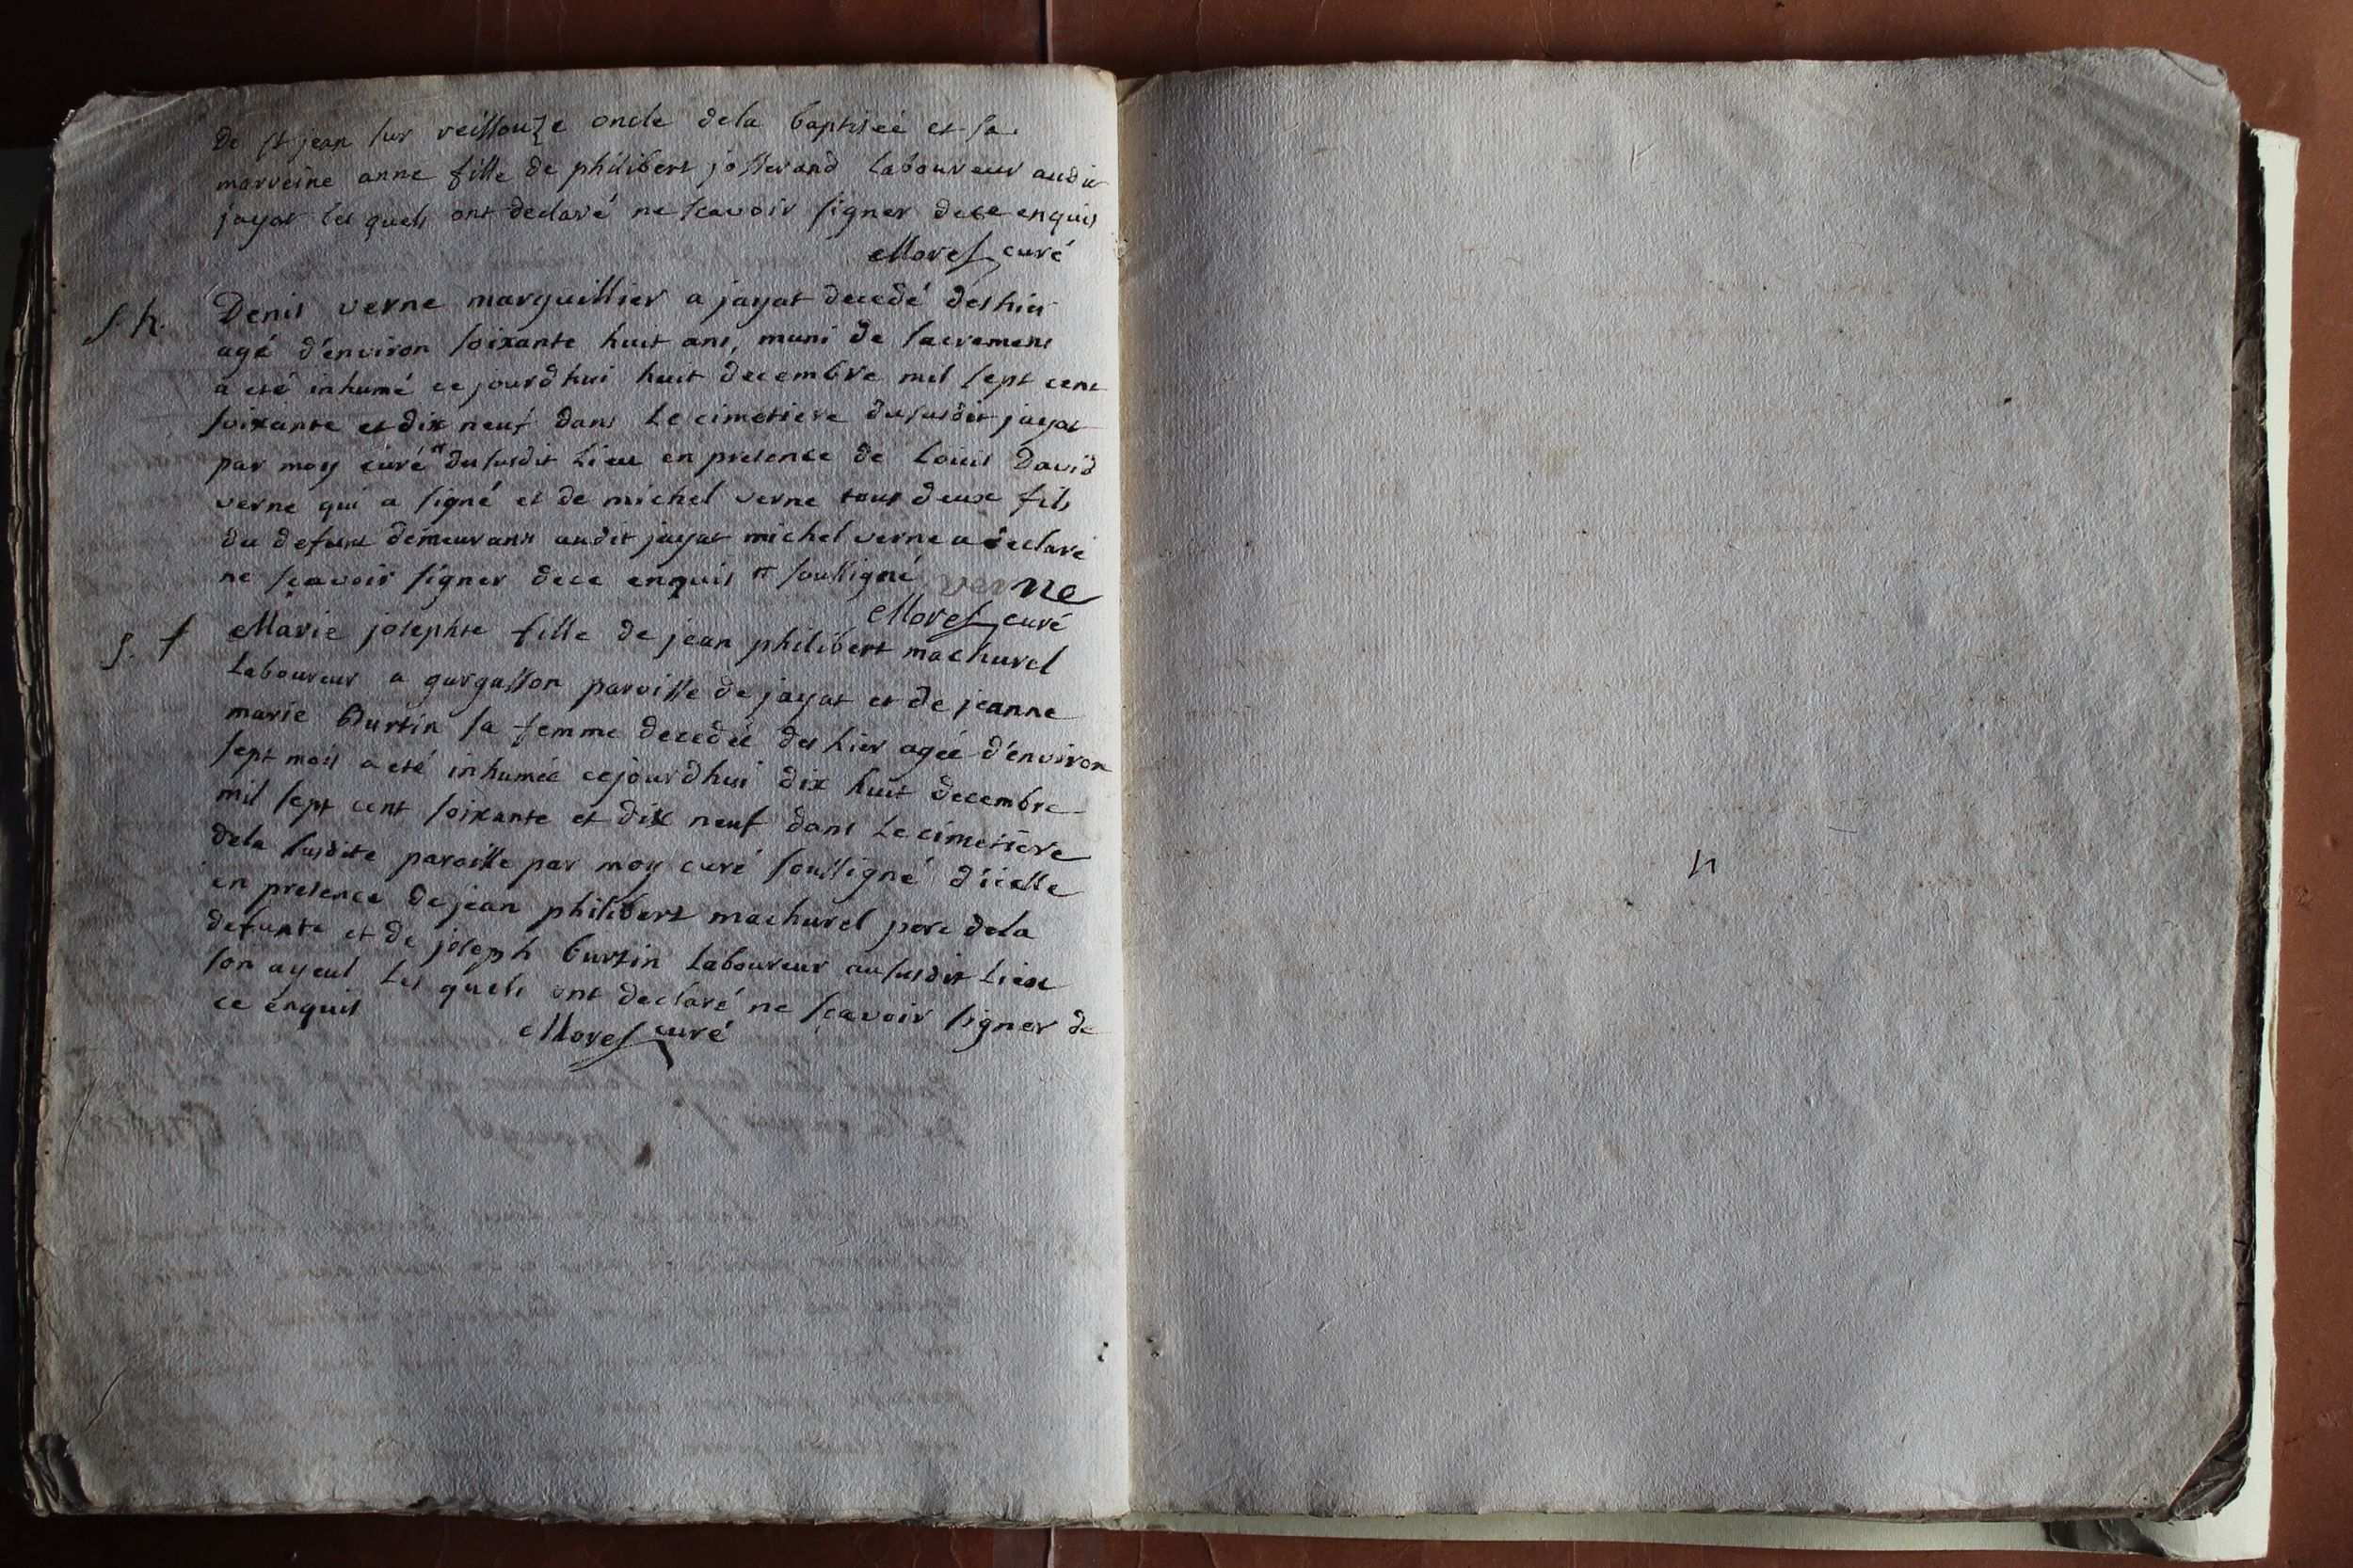 De st jean sur reissouze oncle dela baptiseé et sa
marreine anne fille de philibert josserand Laboureur audit
jayat les quels ont declaré ne scavoir signer dece enquis
Morel curé
s. h. Denis verne marguillier a jayat decedé des hier
agé d'environ soixante huit ans, muni de sacremens
a eté inhumé ce jourd'hui huit decembre mil sept cent
soixante et dix neuf dans Le cimetiere dususdit jayat
par moy curé # dususdit Lieu en presence de Louis David
verne qui a signé et de michel verne tous deux fils
du defunt demeurans audit jayat michel verne a declaré
ne sçavoir signer dece enquis # soussigné verne
Morel curé
s. f Marie josephte fille de jean philibert machurel
Laboureur a gargasson paroisse de jayat et de jeanne
marie Burtin sa femme decedeé des hier ageé d'environ
sept mois a eté inhumeé cejourd'hui dix huit decembre
mil sept cent soixante et dix neuf dans Le cimetiere
dela susdite paroisse par moy curé soussigné d'icelle
en presence de jean philibert machurel pere dela
defunte et de joseph burtin Laboureur aususdit Lieu
son ayeul Les quels ont declaré ne sçavoir signer de
ce enquis
Morel curé